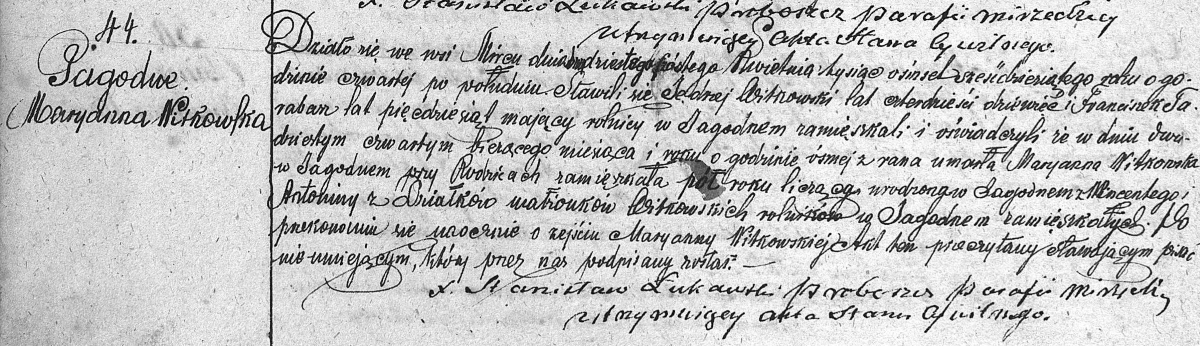 X. Stanisław Łukawski Proboszcz Parafii Mirzeckiey
utrzymuiący Akta Stanu Cywilnego.
44.
Jagodne.
Maryanna Witkowska
Działo się we wsi Mircu dnia dwudziestego szóstego Kwietnia tysiąc ośmset sześćdziesiątego roku o go-
dzinie czwartej po południu. Stawili się Jędrzej Witkowski lat czterdzieści dziewięć i Franciszek
raban lat pięćdziesiąt mający rolnicy w Jagodnem zamieszkali i oświadczyli że w dniu dwu-
dziestym czwartym bieżącego miesiąca i roku o godzinie ósmej z rana umarła Maryanna Witkowska
w Jagodnem przy Rodzicach zamięszkała pół roku licząca, urodzona w Jagodnem z Wincentego i
Antoniny z Działków małżonków Witkowskich rolników w Jagodnem zamięszkałych. Po
przekonaniu się naocznie o zejściu Maryanny Witkowskiej Akt ten przeczytany stawającym pisać
nie umiejącym, który przez nas podpisany został. —
X. Stanisław Łukawski Proboszcz Parafii
utrzymuiący Akta Stanu Cywilnego.